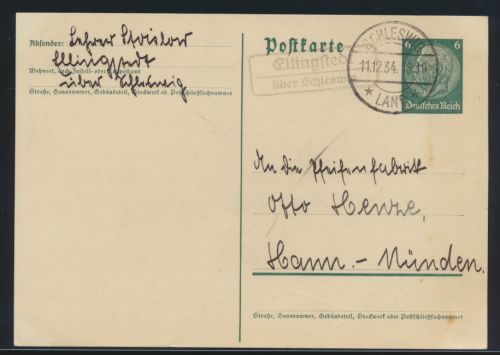 Absender: Lehrer Stoislow
Ellingstedt
Wohnort, auch Zustell- oder Leitpostamt
über Schleswig
Straße, Hausnummer, Gebäudeteil, Stockwerk od. Postschließfachnummer
Postkarte
Ellingsted
über Schlesw
SCHLESWIG
11.12.34.
* LAN
6 6
Deutsches Reich
An die Pfeifenfabrik
Otto Henze,
Hann.-Münden.
Straße, Hausnummer, Gebäudeteil, Stockwerk oder Postschließfachnummer